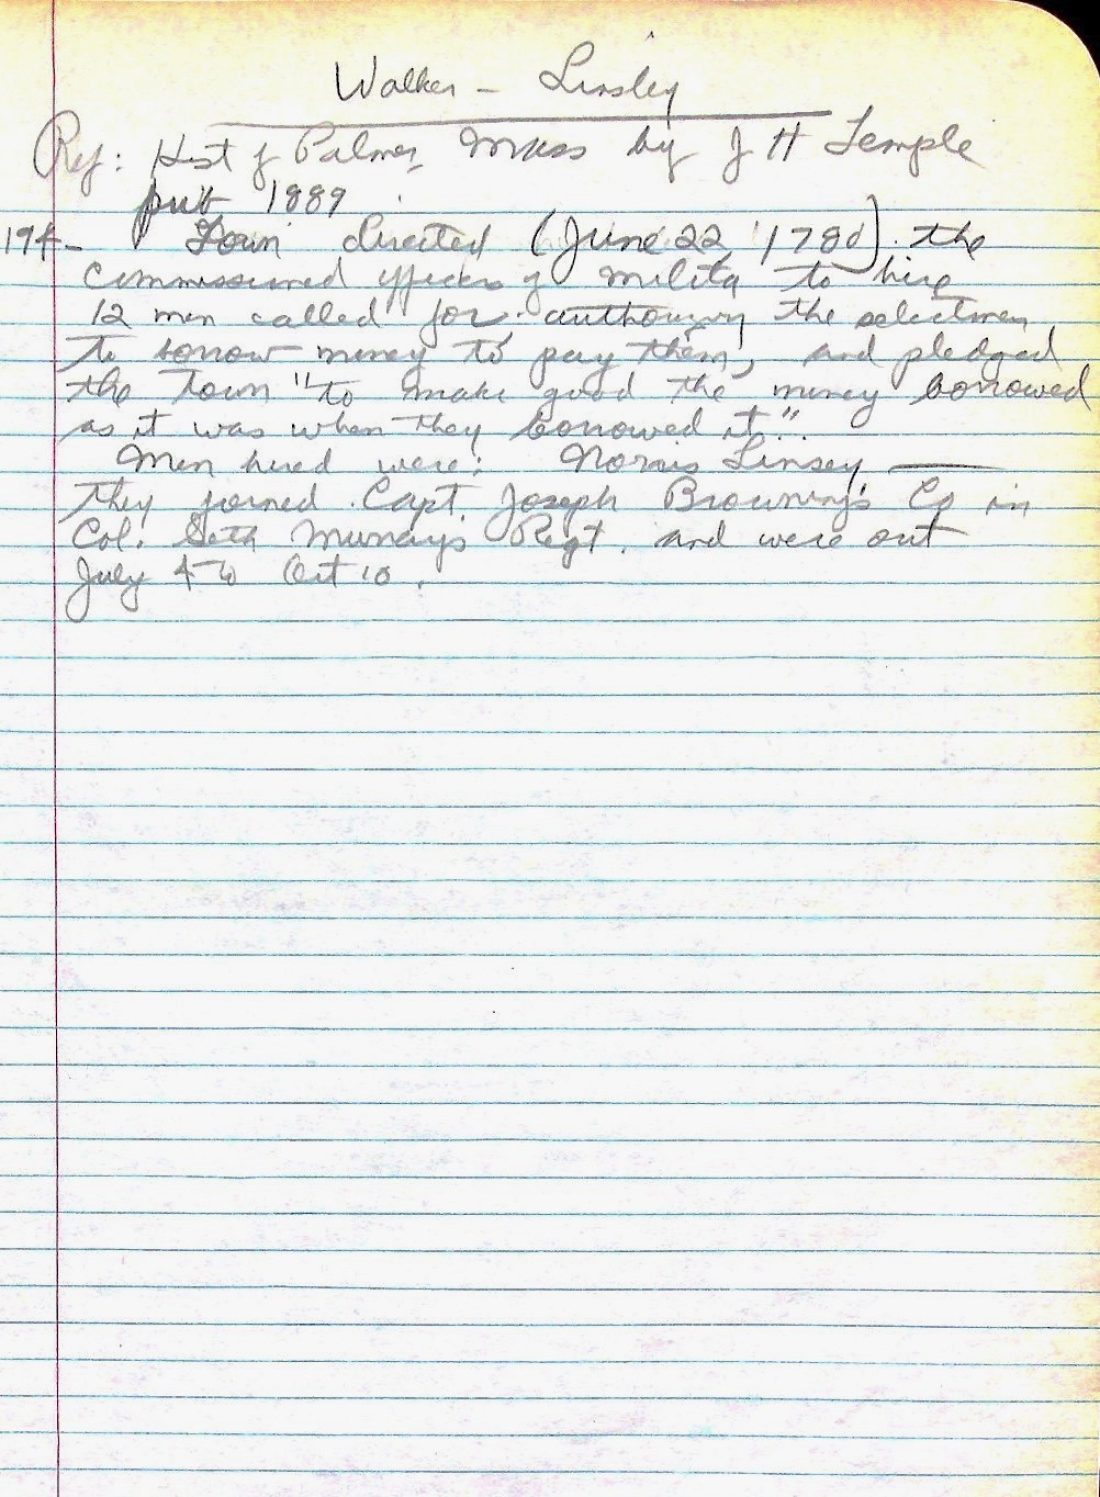 Walker - Linsley
Ref: Hist of Palmer, Mass by J H Temple
pub 1889
194- Town directed (June 22 1780) the
commissioned officers of milita to hire
12 men called for. authorizing the selectmen
to borrow money to pay them, and pledged
the town "to make good the money borrowed
as it was when they borrowed it".
Men hired were: Norris Linsey ——
they joined Capt. Joseph Browning's Co in
Col. Seth Murray's Regt. and were out
July 4 to Oct 10.